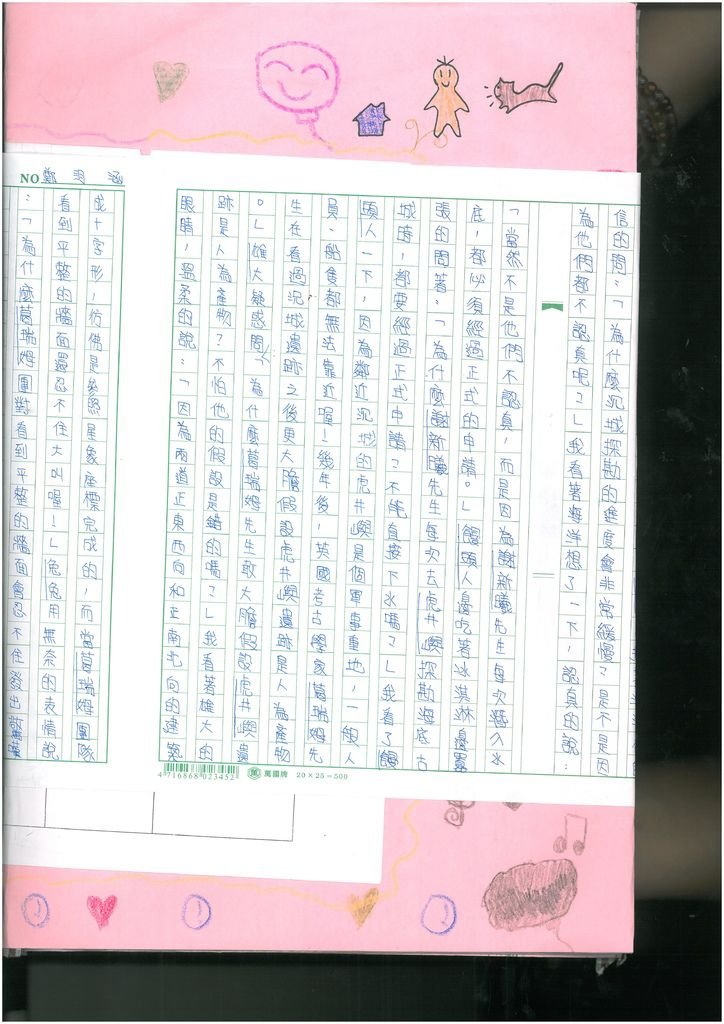 信的問：「為什麼沉城探勘的進度會非常緩慢？是不是因
為他們都不認真呢？」我看著海洋想了一下，認真的說：
「當然不是他們不認真，而是因為謝新曦先生每次潛入水
底，都必須經過正式的申請。」饅頭人邊吃著冰淇淋邊囂
張的問著：「為什麼謝新曦先生每次去虎井嶼探勘海底古
城時，都要經過正式申請？不能直接下水嗎？」我看了饅
頭人一下，因為鄰近沉城的虎井嶼是個軍事重地，一般人
員、船隻都無法靠近喔！幾年後，英國考古學家葛瑞姆先
生在看過沉城遺跡之後更大膽假設虎井嶼遺跡是人為產物
。」雄大疑惑問：「為什麼葛瑞姆先生敢大膽假設虎井嶼遺
跡是人為產物？不怕他的假設是錯的嗎？」我看著雄大的
眼睛，溫柔的說：「因為兩道正東西向和正南北向的建築
4716868023452 萬國牌 20×25=500
NO 鄭 涵
成十字形，彷彿是參照星象座標完成的，而當葛瑞姆團隊
看到平整的牆面還忍不住大叫喔！」兔兔用無奈的表情說
：「為什麼葛瑞姆團隊看到平整的牆面會忍不住發出驚嘆